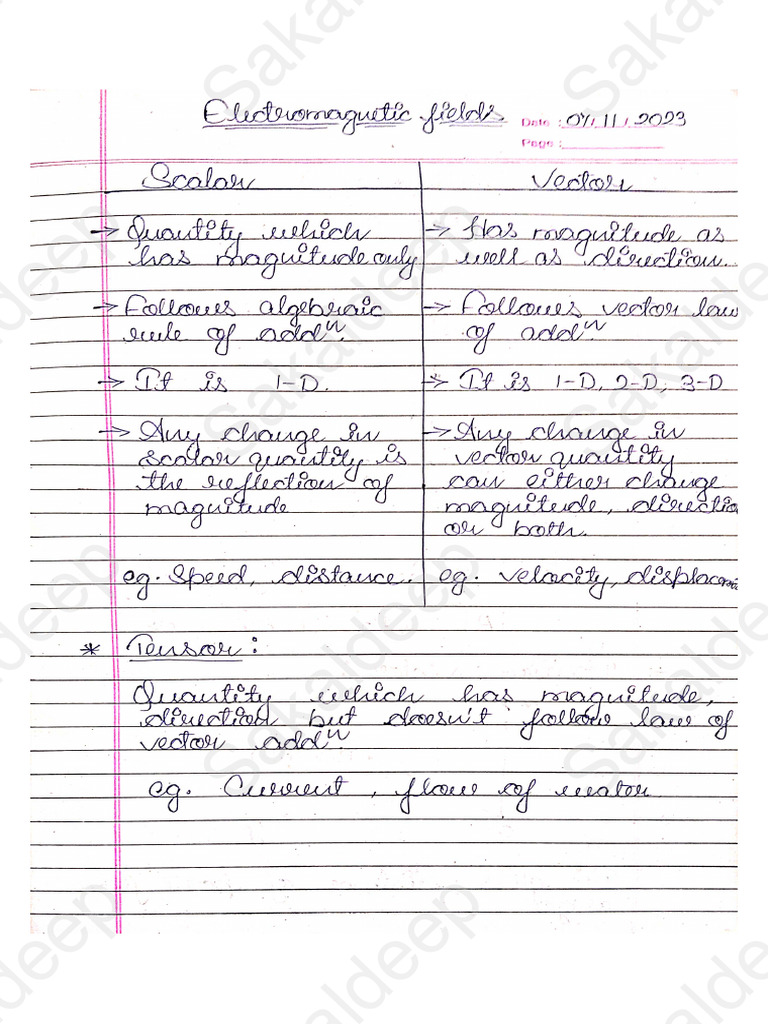 Electromagnetic fields
Date : 07/11/2023
Page :
Scalar
→ Quantity which
has magnitude only
→ Follows algebraic
rule of addⁿ.
→ It is 1-D.
→ Any change in
scalar quantity is
the reflection of
magnitude
eg. Speed, distance.
Vector
→ Has magnitude as
well as direction.
→ Follows vector law
of addⁿ
→ It is 1-D, 2-D, 3-D
→ Any change in
vector quantity
can either change
magnitude, directio
or both.
eg. velocity, displacem
* Tensor :
Quantity which has magnitude,
direction but doesn't follow law of
vector addⁿ.
eg. Current, flow of water
Sakaldeep